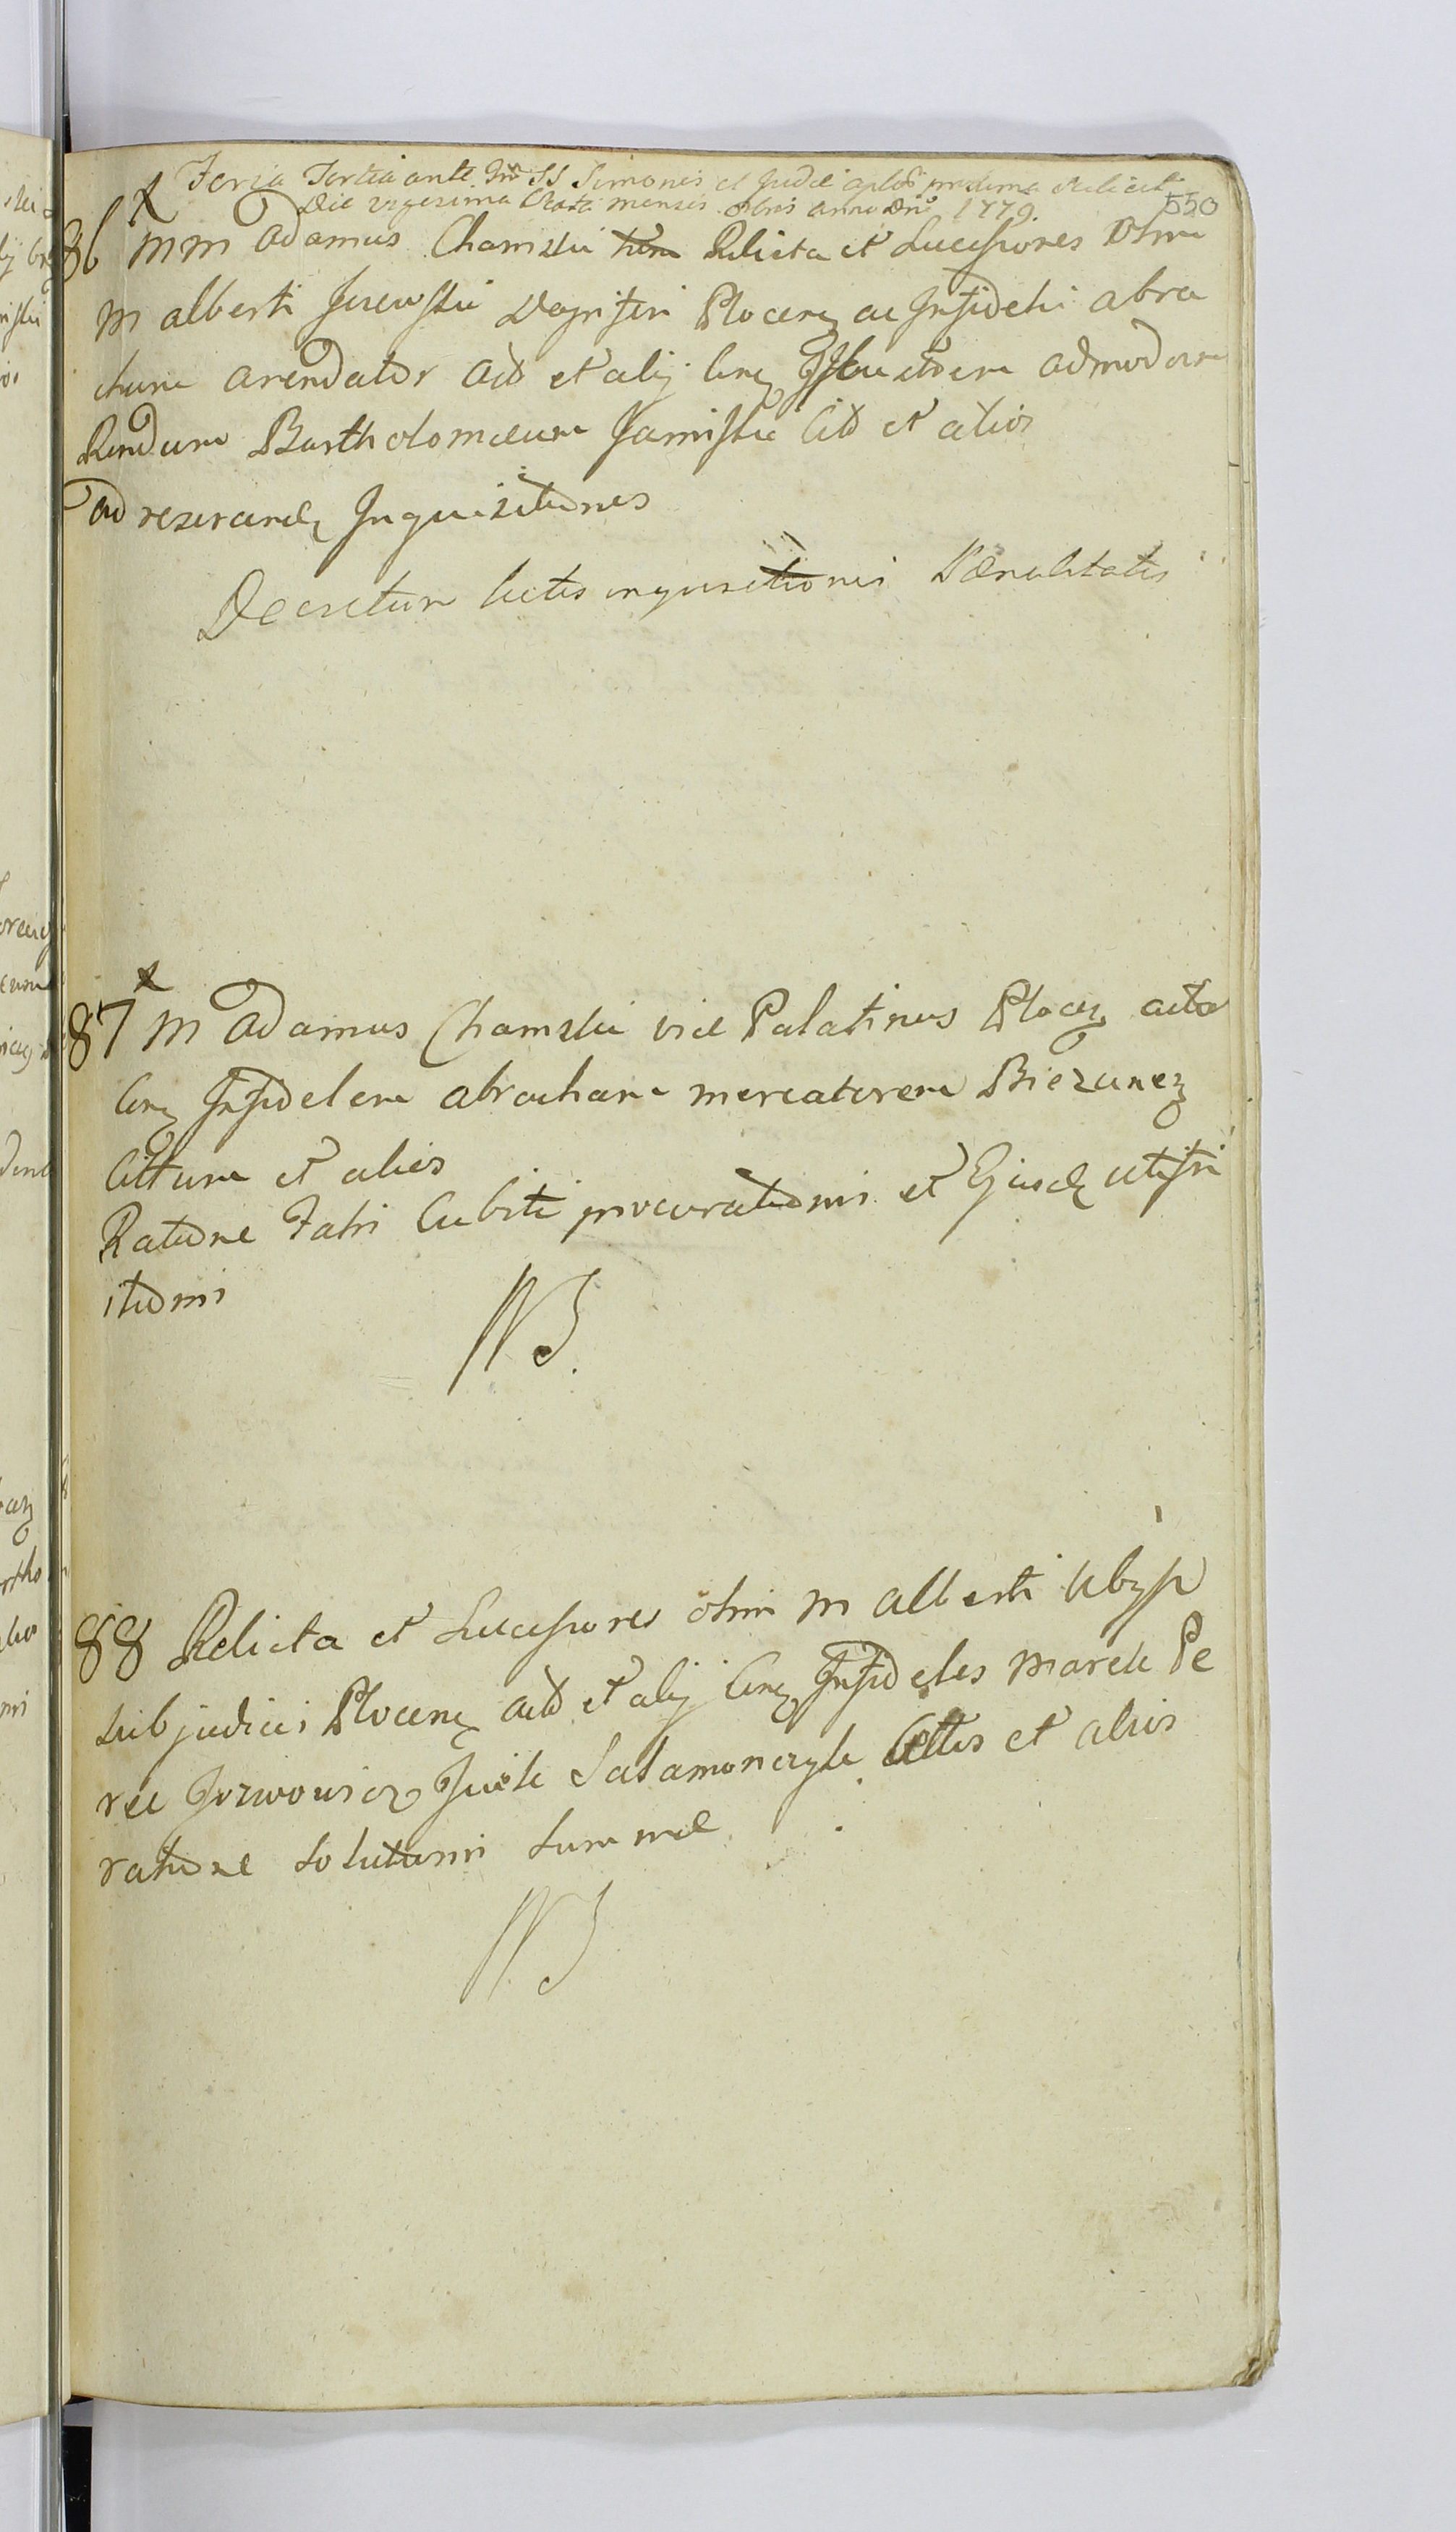 Feria Tertia ante Ftm SS Simonis et Judae aplor proxima videlicet
Die vigesima Sexta mensis 8bris Anno Dni 1779.
550
86 MM Adamus Chamski Relicta et Successores Olim
M Alberti Dapiferi Plocen ac Infidelis Abra
ham Arendator Act et alij Cnt Illustrem Admodum
Rendum Bartholomaeum Kamiski Cit et alios
Ad reserand Inquisitiones
Decretum lectis inquisitionis Paenalitatis
87 M Adamus Chamski vice Palatinus Plocen Actor
Cnt Infidelem Abraham mercatorem Biezunen
Cittum et alios
Ratione Patri Cubiti procurationis et Ejusd
itionis
NB.
88 Relicta et Successores olim M Alberti Ubysz
subjudicis Plocen Act et alij Cnt Infideles Marek Pe
rec Jozwowicz Judk Salamonczyk Cittos et alios
ratione solutionis summae
NB